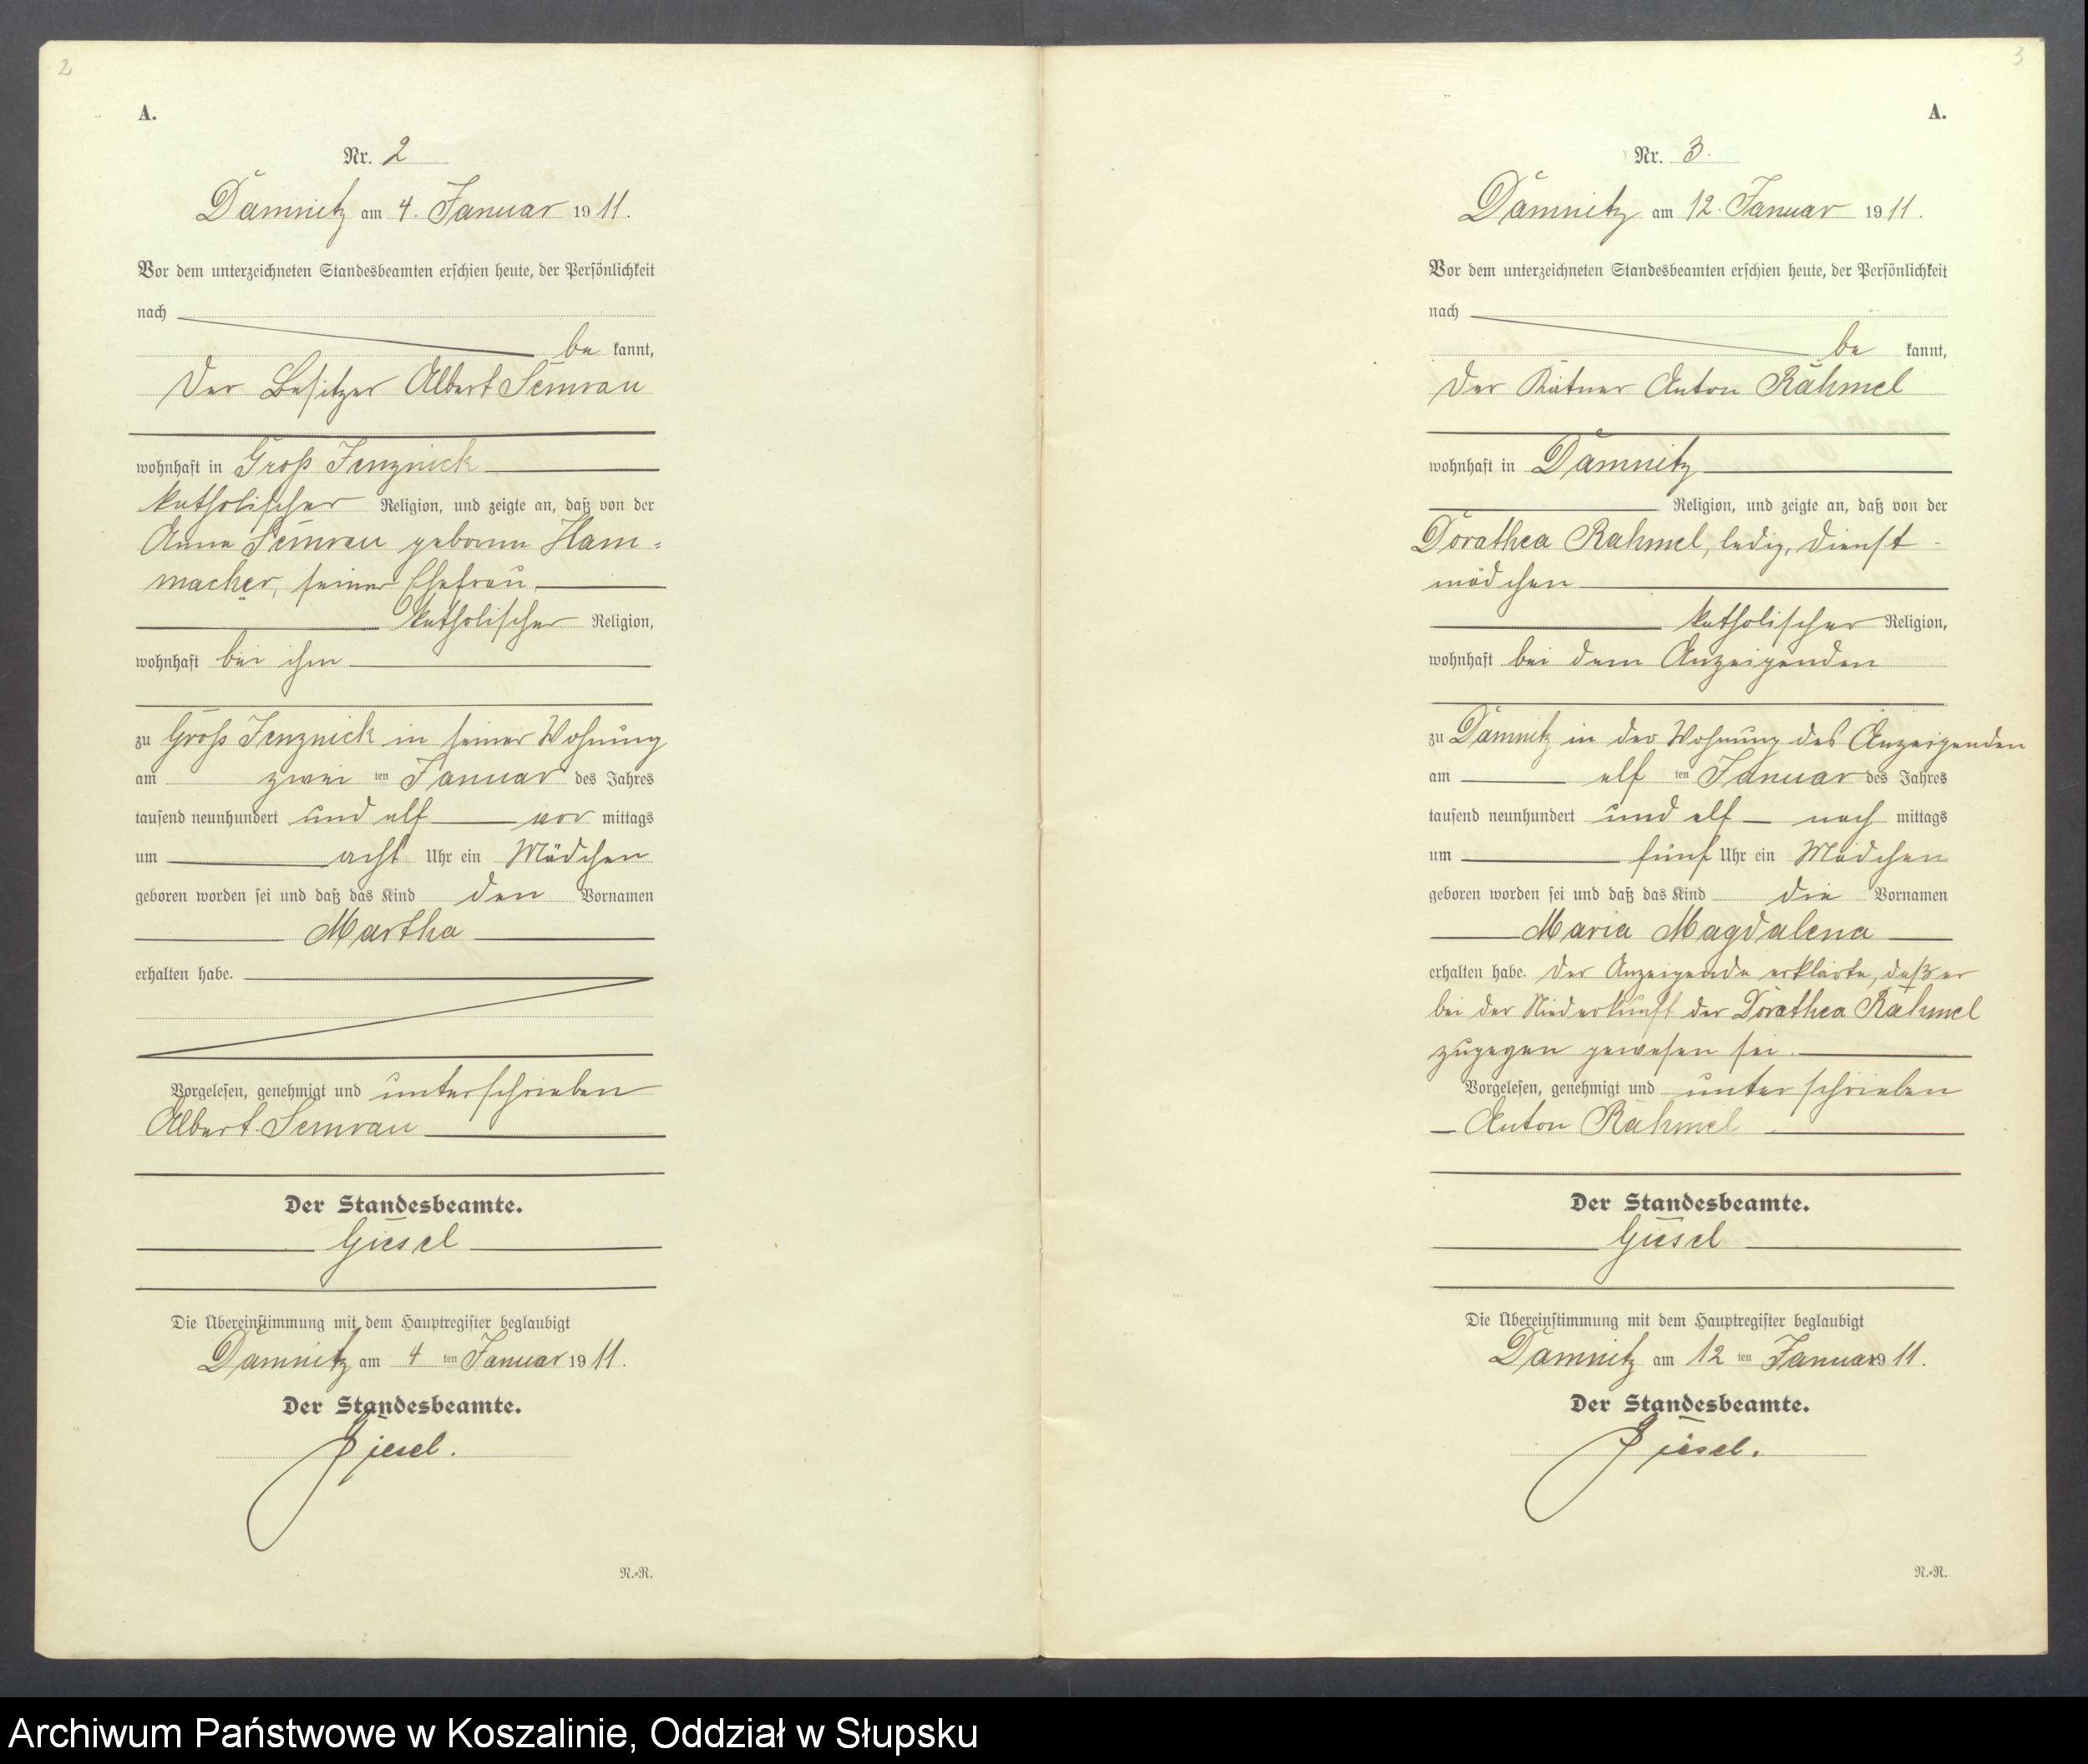 2
A.
Nr. 2
Damnitz am 4. Januar 1911.
Vor dem unterzeichneten Standesbeamten erschien heute, der Persönlichkeit
nach
be kannt,
der Besitzer Albert Semrau
wohnhaft in Groß Jenznick
katholischer Religion, und zeigte an, daß von der
Anna Semrau geborene Ham=
macher, seiner Ehefrau,
katholischer Religion,
wohnhaft bei ihm
zu Groß Jenznick in seiner Wohnung
am zwei ten Januar des Jahres
tausend neunhundert und elf vor mittags
um acht Uhr ein Mädchen
geboren worden sei und daß das Kind den Vornamen
Martha
erhalten habe.
Vorgelesen, genehmigt und unterschrieben
Albert Semrau
Der Standesbeamte.
Giesel
Die Übereinstimmung mit dem Hauptregister beglaubigt
Damnitz am 4 ten Januar 1911.
Der Standesbeamte.
Giesel.
N.=R.
3
A.
Nr. 3.
Damnitz am 12. Januar 1911.
Vor dem unterzeichneten Standesbeamten erschien heute, der Persönlichkeit
nach
be kannt,
der Kätner Anton Rahmel
wohnhaft in Damnitz
Religion, und zeigte an, daß von der
Dorathea Rahmel, ledig, Dienst-
mädchen
katholischer Religion,
wohnhaft bei dem Anzeigenden
zu Damnitz in der Wohnung des Anzeigenden
am elf ten Januar des Jahres
tausend neunhundert und elf nach mittags
um fünf Uhr ein Mädchen
geboren worden sei und daß das Kind die Vornamen
Maria Magdalena
erhalten habe. Der Anzeigende erklärte, daß er
bei der Niederkunft der Dorathea Rahmel
zugegen gewesen sei.
Vorgelesen, genehmigt und unterschrieben
Anton Rahmel
Der Standesbeamte.
Giesel
Die Übereinstimmung mit dem Hauptregister beglaubigt
Damnitz am 12 ten Januar 1911.
Der Standesbeamte.
Giesel.
N.=R.
Archiwum Państwowe w Koszalinie, Oddział w Słupsku